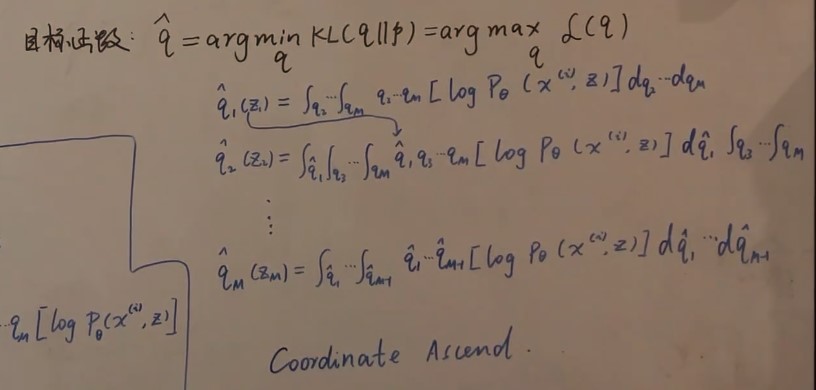 目标函数: q̂ = argmin_q KL(q||p) = arg max_q L(q)
q̂₁(z₁) = ∫_{q₂}···∫_{q_M} q₂···q_M [log P_θ(x⁽ⁱ⁾, z)] dq₂···dq_M
q̂₂(z₂) = ∫_{q̂₁}∫_{q₃}···∫_{q_M} q̂₁ q₃···q_M [log P_θ(x⁽ⁱ⁾, z)] dq̂₁ ∫q₃···∫q_M
⋮
q̂_M(z_M) = ∫_{q̂₁}···∫_{q̂_{M-1}} q̂₁···q̂_{M-1} [log P_θ(x⁽ⁱ⁾, z)] dq̂₁···dq̂_{M-1}
··q_M [log P_θ(x⁽ⁱ⁾, z)]
Coordinate Ascend.